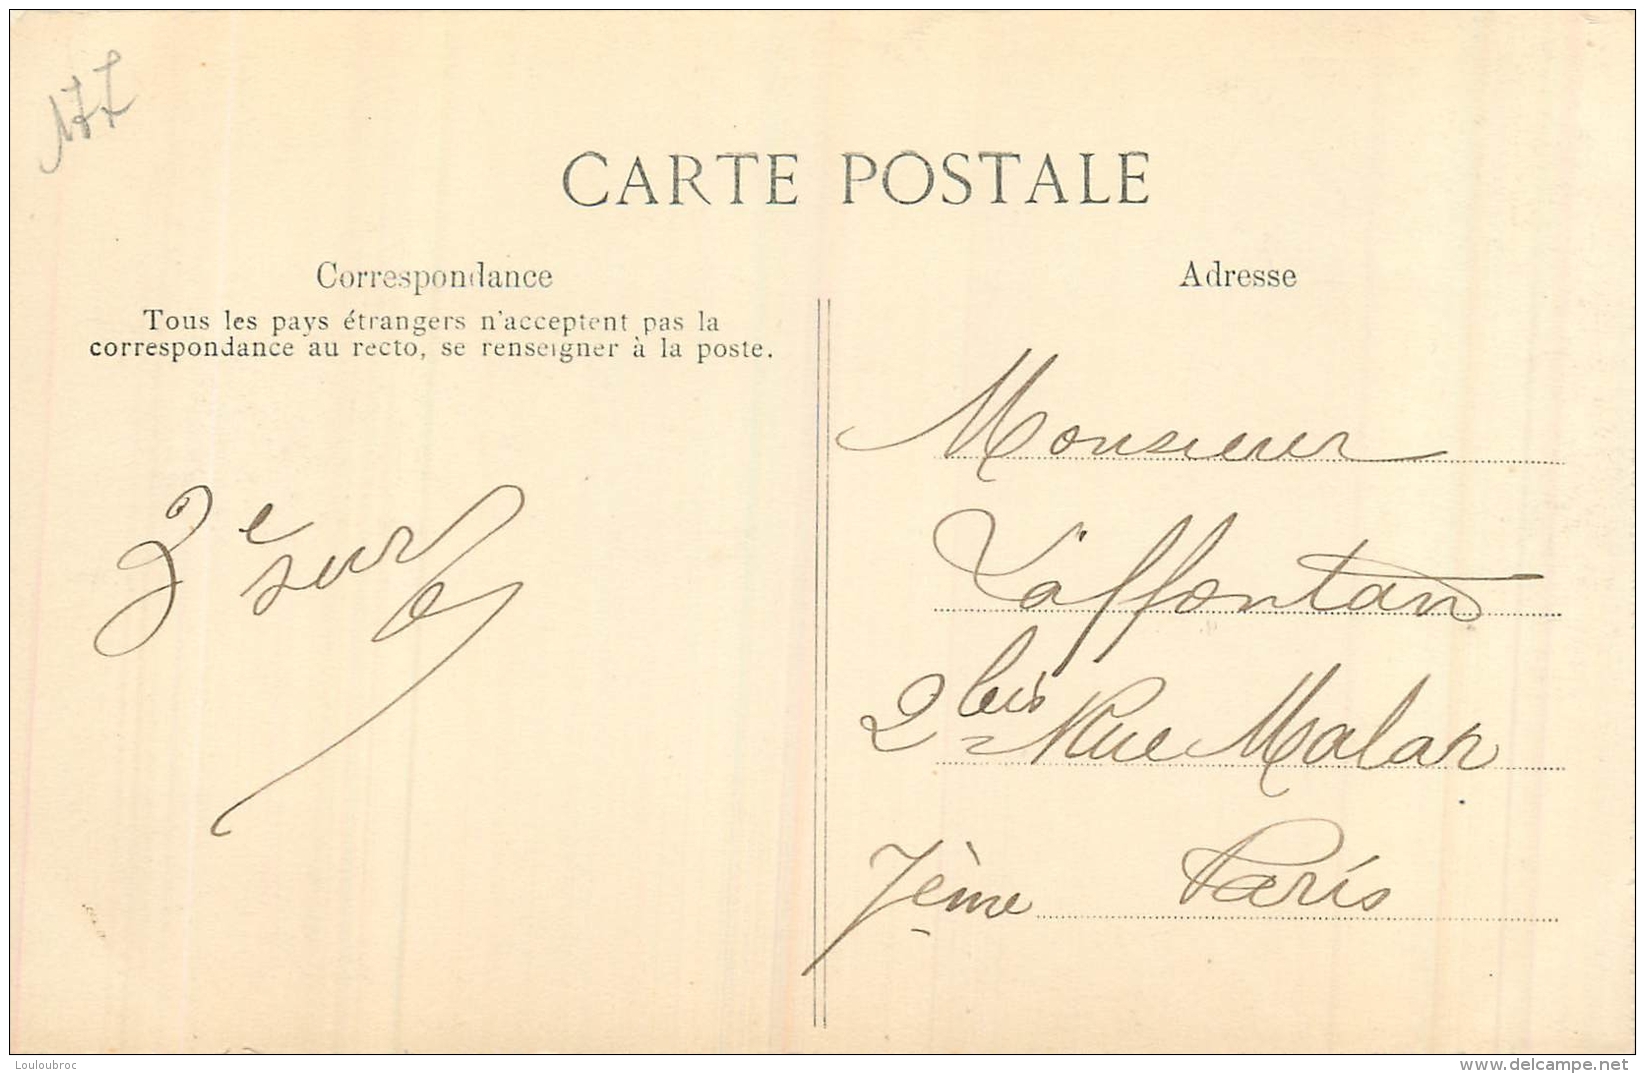 177
CARTE POSTALE
Correspondance
Tous les pays étrangers n'acceptent pas la
correspondance au recto, se renseigner à la poste.
3e sur 6
Adresse
Monsieur
Laffontan
2 bis Rue Malar
7ème Paris
Louloubroc
www.delcampe.net